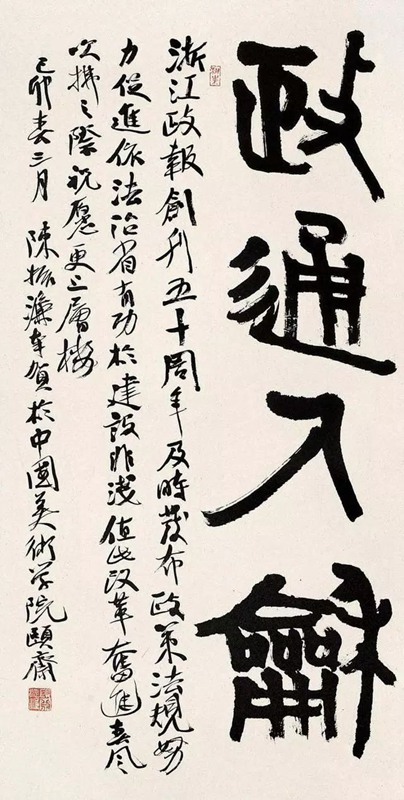 政通人龢
浙江政報創刊五十周年及時發布政策法規努
力促進依法治省有功於建設非淺值此改革奮進春風
吹拂之際祝愿更上層樓
己卯春三月 陳振濂奉賀於中國美術学院頤齋